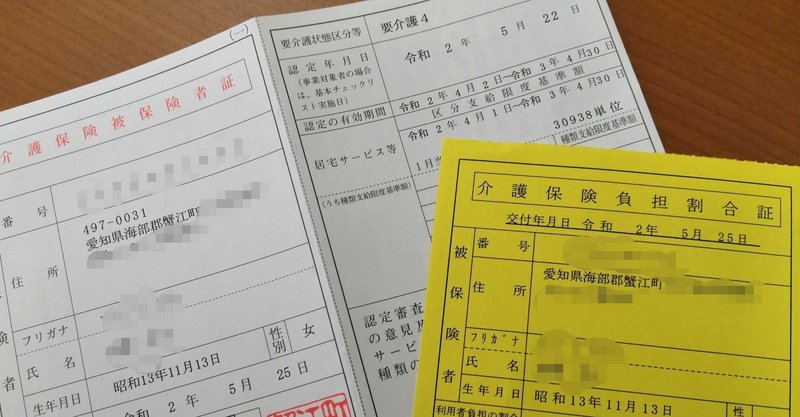 (一)
介護保険被保険者証
番号
497-0031
愛知県海部郡蟹江町
住所
フリガナ
氏名
性別 女
生年月日 昭和13年11月13日
令和 2年 5月 25日
要介護状態区分等 要介護4
認定年月日
(事業対象者の場合は、基本チェックリスト実施日)
令和 2年 5月 22日
認定の有効期間
令和 2年 4月 2日~令和 3年 4月30日
居宅サービス等
区分支給限度基準額
令和 2年 4月 1日~令和 3年 4月30日
1月当
30938単位
(うち種類支給限度基準額)
種類支給限度基準額
認定審査
の意見及
サービ
種類の
介護保険負担割合証
交付年月日 令和 2年 5月 25日
被保険者
番号
住所
愛知県海部郡蟹江町
フリガナ
氏名
生年月日 昭和13年11月13日
性
利用者負担の割合